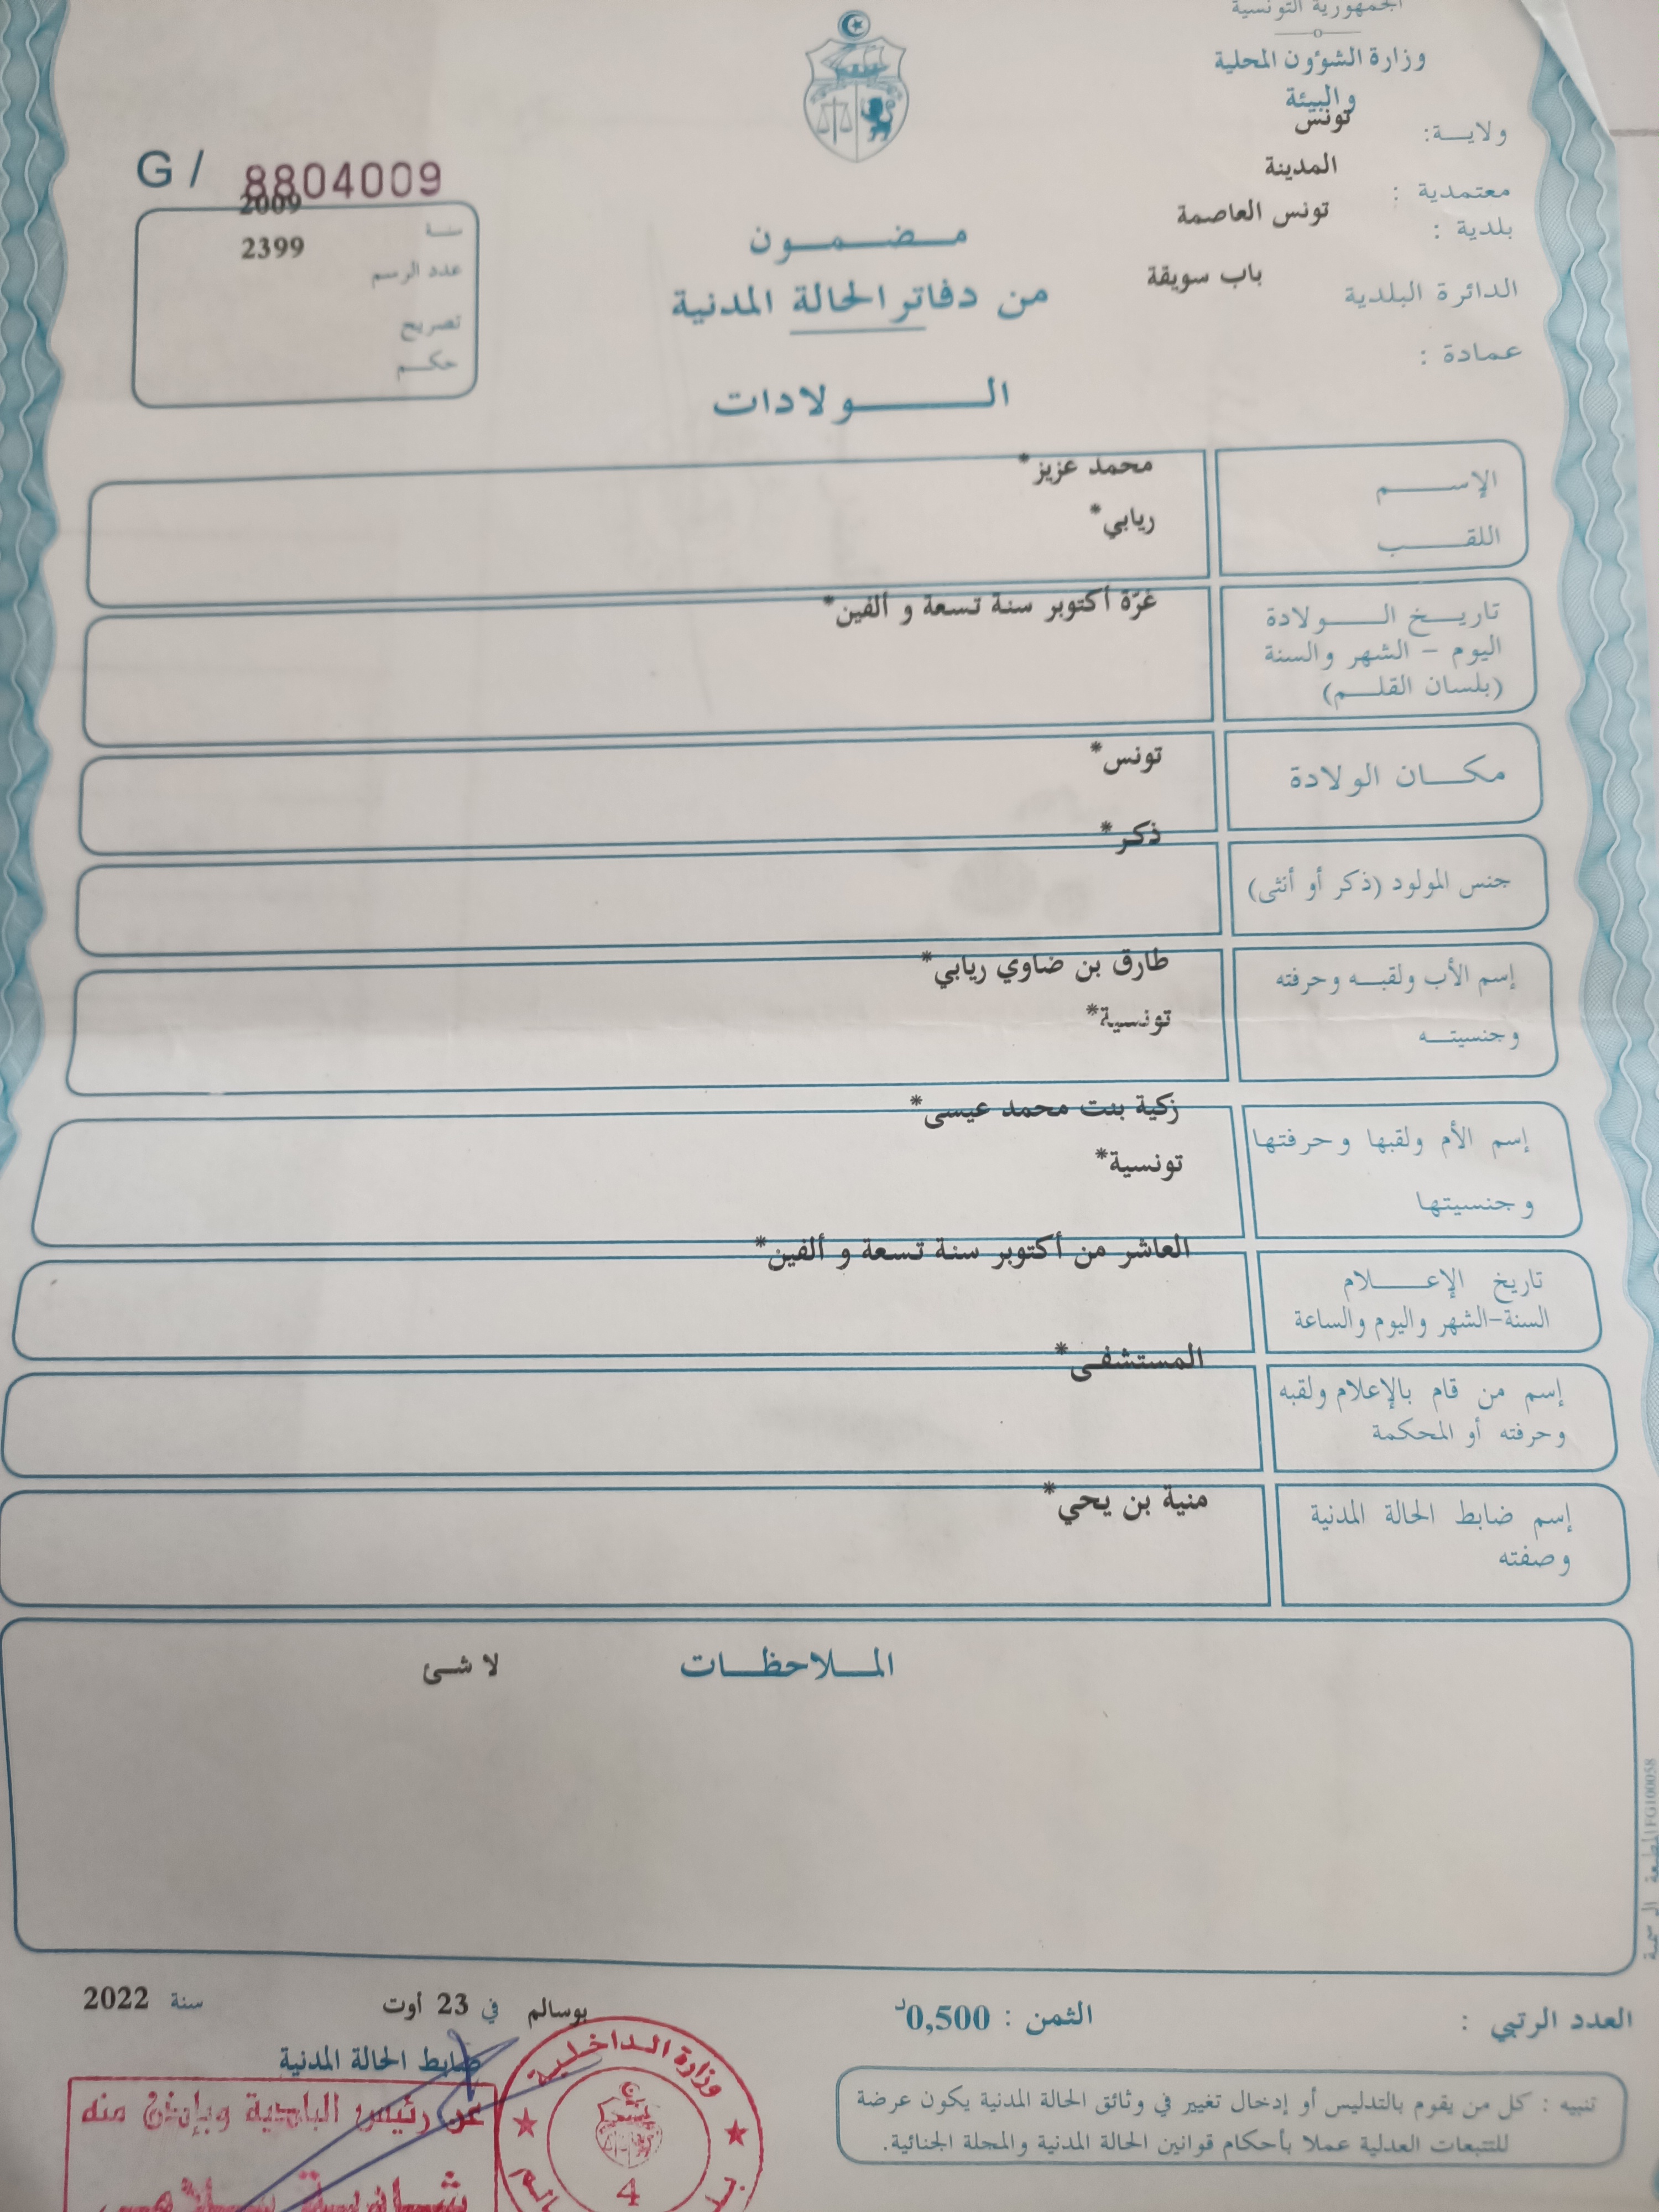 الجمهورية التونسية
وزارة الشؤون المحلية
والبيئة
ولاية: تونس
معتمدية : المدينة
بلدية : تونس العاصمة
الدائرة البلدية باب سويقة
عمادة :
G / 8804009
سنة 2009
عدد الرسم 2399
تصريح
حكم
مضمون
من دفاتر الحالة المدنية
الولادات
الإسم محمد عزيز*
اللقب ريابي*
تاريخ الولادة غرّة أكتوبر سنة تسعة و ألفين*
اليوم - الشهر والسنة
(بلسان القلم)
مكان الولادة تونس*
جنس المولود (ذكر أو أنثى) ذكر*
إسم الأب ولقبه وحرفته طارق بن ضاوي ريابي*
وجنسيته تونسية*
إسم الأم ولقبها وحرفتها زكية بنت محمد عيسى*
وجنسيتها تونسية*
تاريخ الإعلام العاشر من أكتوبر سنة تسعة و ألفين*
السنة-الشهر واليوم والساعة
إسم من قام بالإعلام ولقبه المستشفى*
وحرفته أو المحكمة
إسم ضابط الحالة المدنية منية بن يحي*
وصفته
الملاحظات لا شئ
العدد الرتبي :
الثمن : 0,500د
بوسالم في 23 أوت سنة 2022
ضابط الحالة المدنية
عن رئيس البلدية وبإذن منه
وزارة الداخلية
4
تنبيه : كل من يقوم بالتدليس أو إدخال تغيير في وثائق الحالة المدنية يكون عرضة
للتتبعات العدلية عملا بأحكام قوانين الحالة المدنية والمجلة الجنائية.
المطبعة الرسمية FG100058